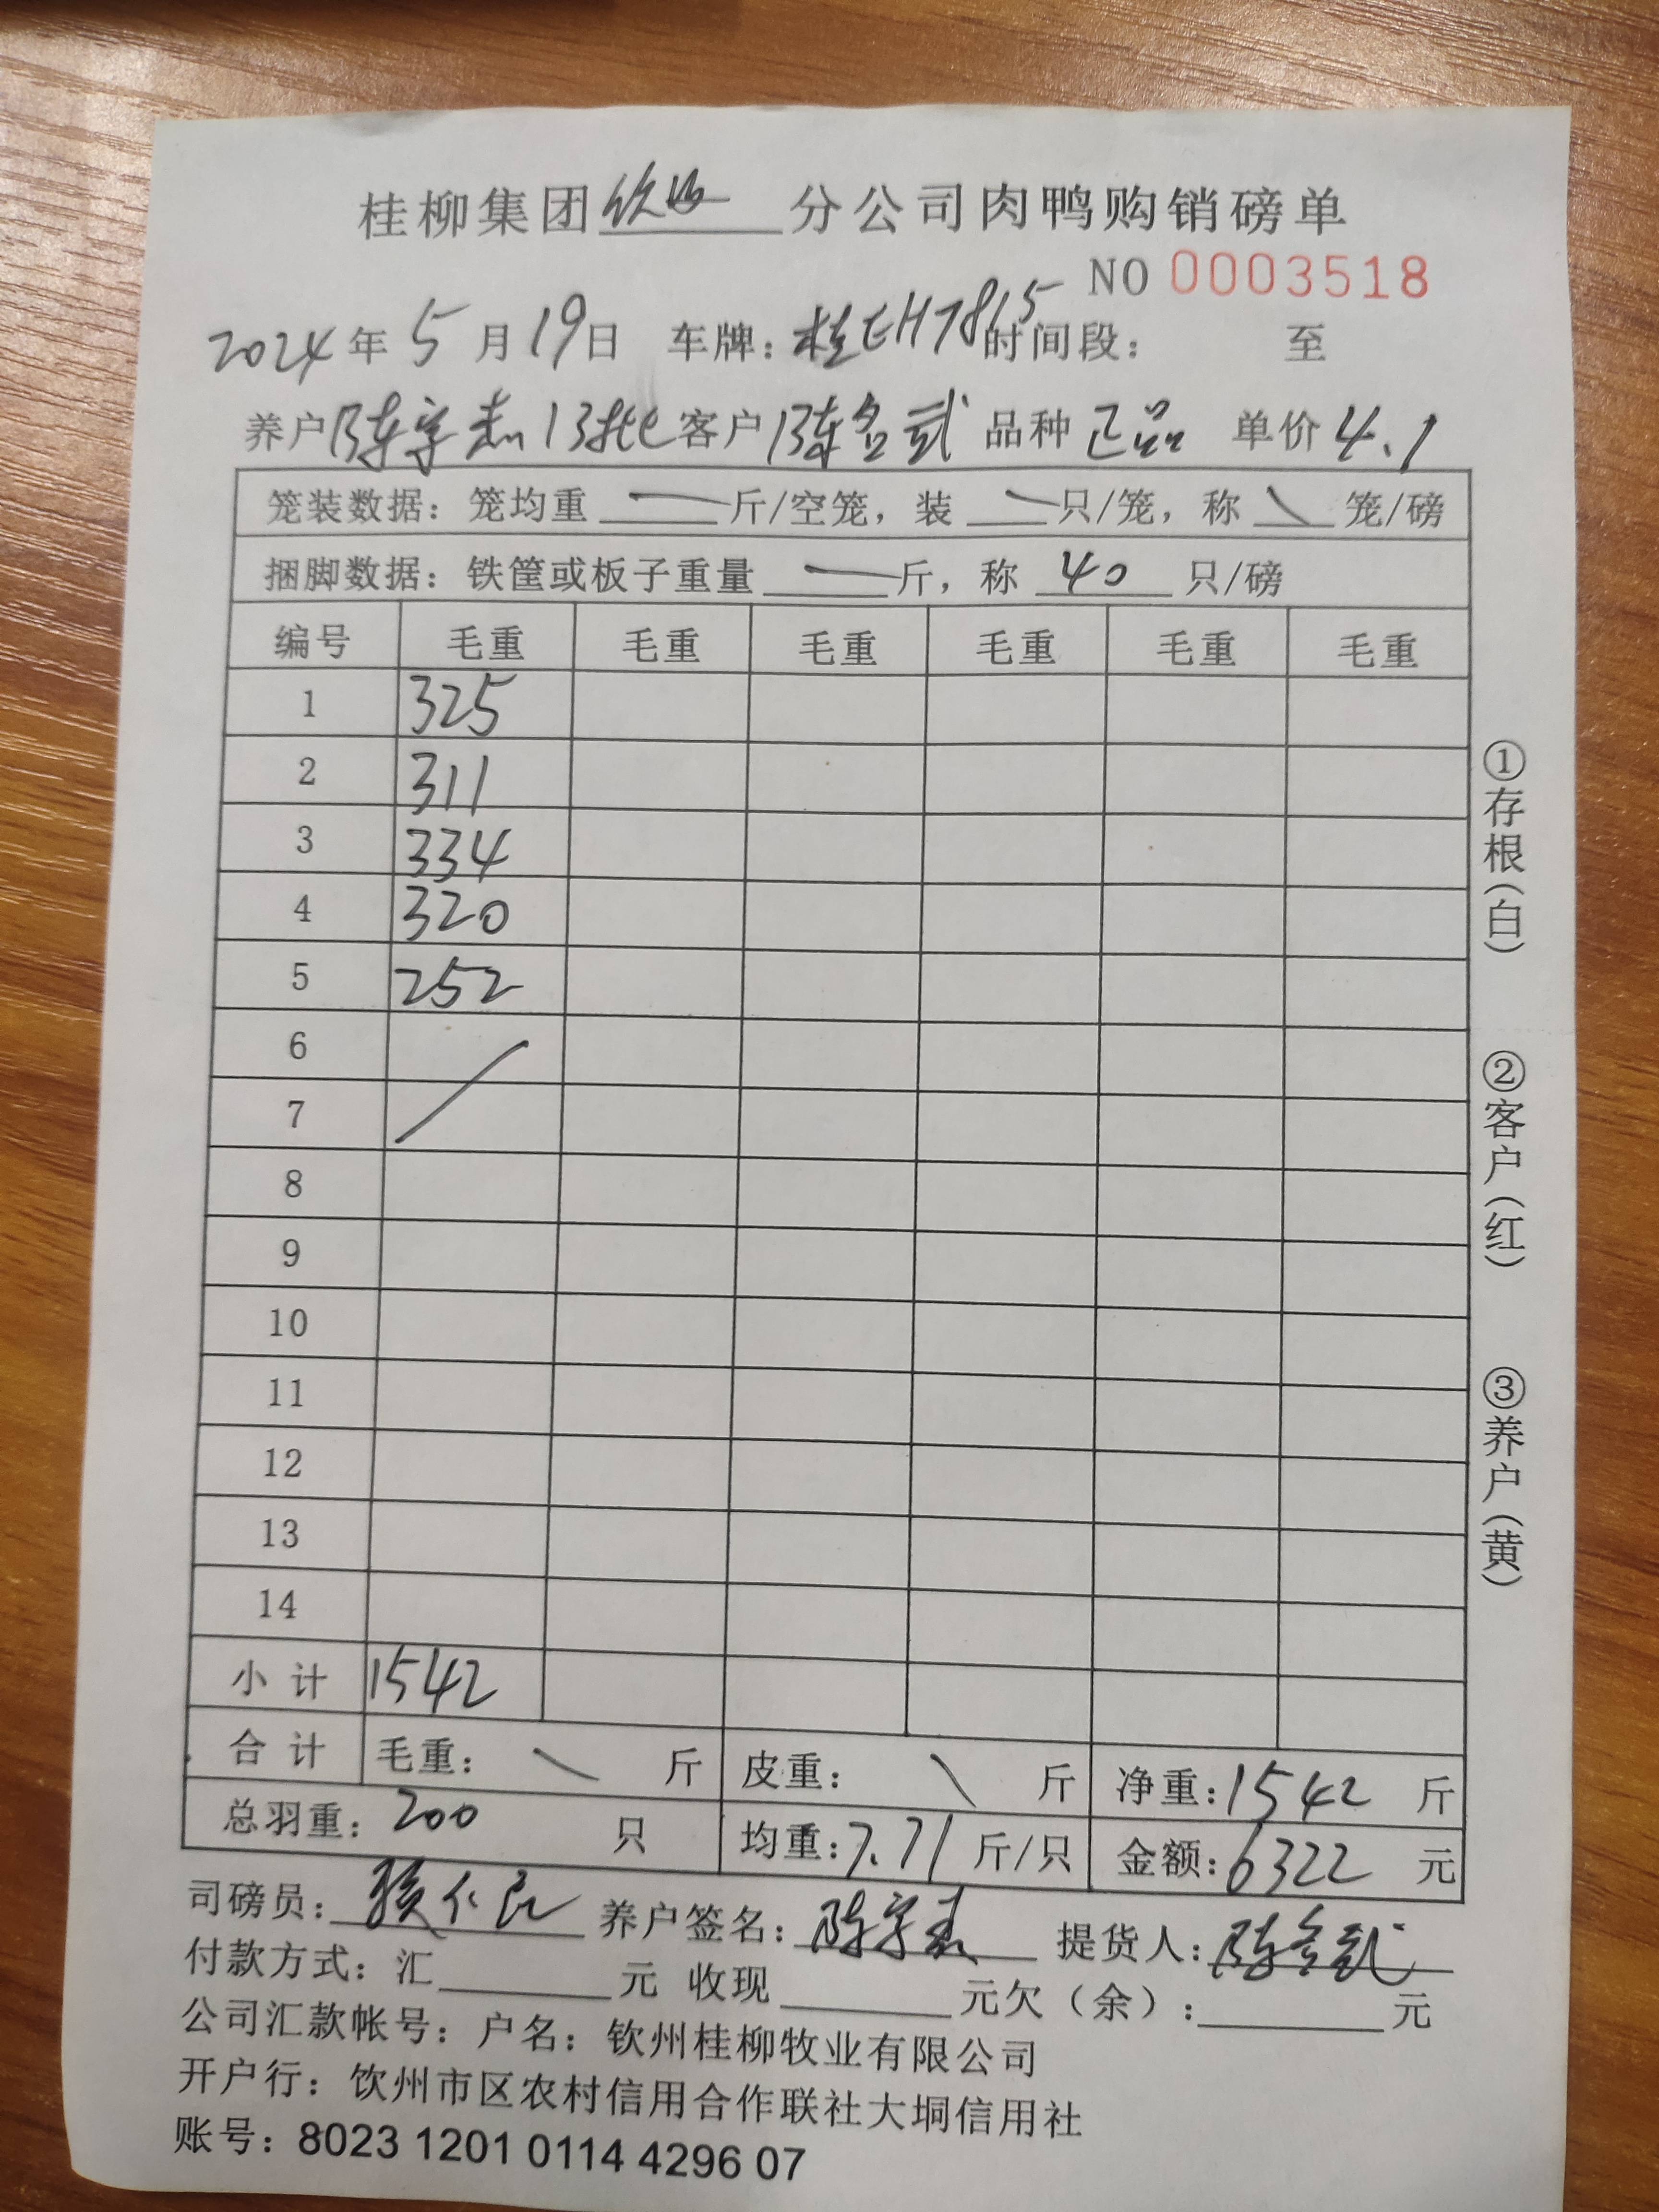 桂柳集团钦州分公司肉鸭购销磅单
NO 0003518
2024年5月19日 车牌：桂EH7815 时间段： 至
养户陈宇杰13批 客户陈名武 品种正品 单价4.1
笼装数据：笼均重 一 斤/空笼，装 \ 只/笼，称 \ 笼/磅
捆脚数据：铁筐或板子重量 一 斤，称 40 只/磅
编号 毛重 毛重 毛重 毛重 毛重 毛重
1 325
2 311
3 334
4 320
5 252
6 /
7
8
9
10
11
12
13
14
小计 1542
合计 毛重： \ 斤 皮重： \ 斤 净重：1542 斤
总羽重：200 只 均重：7.71 斤/只 金额：6322 元
司磅员： 仁良 养户签名：陈宇杰 提货人：陈名武
付款方式：汇 元 收现 元欠（余）： 元
公司汇款帐号：户名：钦州桂柳牧业有限公司
开户行：饮州市区农村信用合作联社大垌信用社
账号：8023 1201 0114 4296 07
①存根（白）
②客户（红）
③养户（黄）